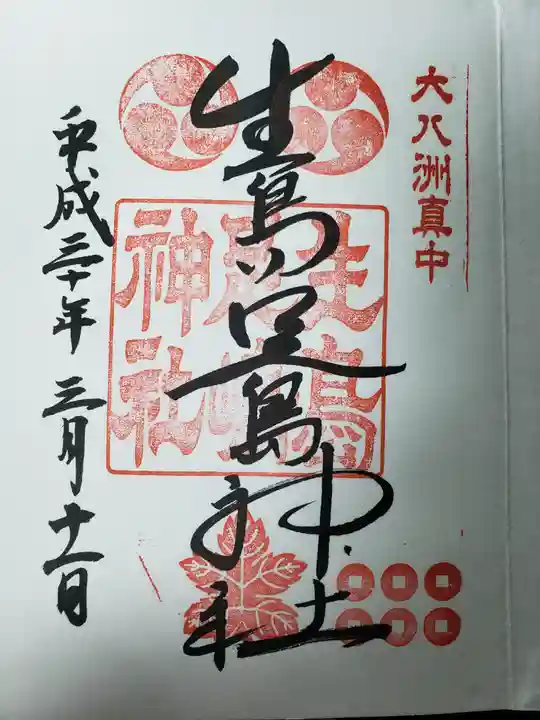 大八洲真中
生島足島神社
生島
足嶋
神社
平成三十年 三月十一日